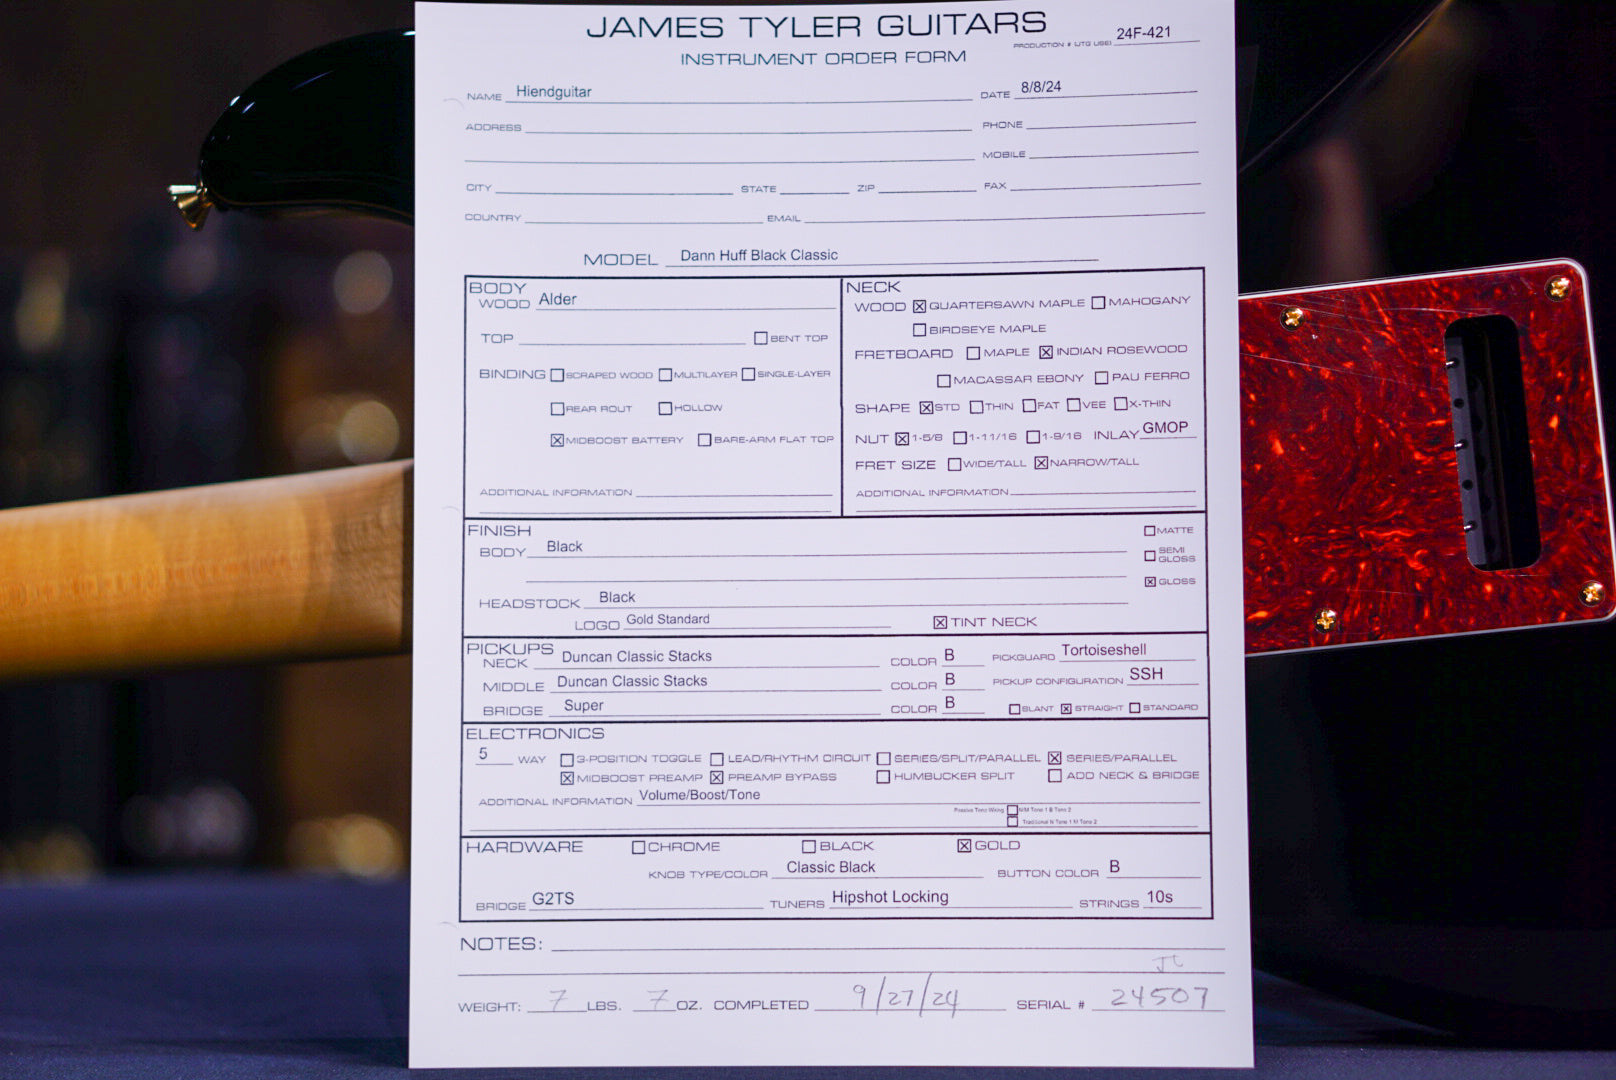 JAMES TYLER GUITARS
PRODUCTION # (JTG USE) 24F-421
INSTRUMENT ORDER FORM
NAME Hiendguitar DATE 8/8/24
ADDRESS PHONE
MOBILE
CITY STATE ZIP FAX
COUNTRY EMAIL
MODEL Dann Huff Black Classic
BODY
WOOD Alder
TOP ☐ BENT TOP
BINDING ☐ SCRAPED WOOD ☐ MULTILAYER ☐ SINGLE-LAYER
☐ REAR ROUT ☐ HOLLOW
☒ MIDBOOST BATTERY ☐ BARE-ARM FLAT TOP
ADDITIONAL INFORMATION
NECK
WOOD ☒ QUARTERSAWN MAPLE ☐ MAHOGANY
☐ BIRDSEYE MAPLE
FRETBOARD ☐ MAPLE ☒ INDIAN ROSEWOOD
☐ MACASSAR EBONY ☐ PAU FERRO
SHAPE ☒ STD ☐ THIN ☐ FAT ☐ VEE ☐ X-THIN
NUT ☒ 1-5/8 ☐ 1-11/16 ☐ 1-9/16 INLAY GMOP
FRET SIZE ☐ WIDE/TALL ☒ NARROW/TALL
ADDITIONAL INFORMATION
FINISH ☐ MATTE
BODY Black ☐ SEMI GLOSS
☒ GLOSS
HEADSTOCK Black
LOGO Gold Standard ☒ TINT NECK
PICKUPS
NECK Duncan Classic Stacks COLOR B PICKGUARD Tortoiseshell
MIDDLE Duncan Classic Stacks COLOR B PICKUP CONFIGURATION SSH
BRIDGE Super COLOR B ☐ SLANT ☒ STRAIGHT ☐ STANDARD
ELECTRONICS
5 WAY ☐ 3-POSITION TOGGLE ☐ LEAD/RHYTHM CIRCUIT ☐ SERIES/SPLIT/PARALLEL ☒ SERIES/PARALLEL
☒ MIDBOOST PREAMP ☒ PREAMP BYPASS ☐ HUMBUCKER SPLIT ☐ ADD NECK & BRIDGE
ADDITIONAL INFORMATION Volume/Boost/Tone
Passive Tone Wiring ☐ N/M Tone 1 B Tone 2
☐ Traditional N Tone 1 M Tone 2
HARDWARE ☐ CHROME ☐ BLACK ☒ GOLD
KNOB TYPE/COLOR Classic Black BUTTON COLOR B
BRIDGE G2TS TUNERS Hipshot Locking STRINGS 10s
NOTES:
WEIGHT: 7 LBS. 7 OZ. COMPLETED 9/27/24 SERIAL # 24507